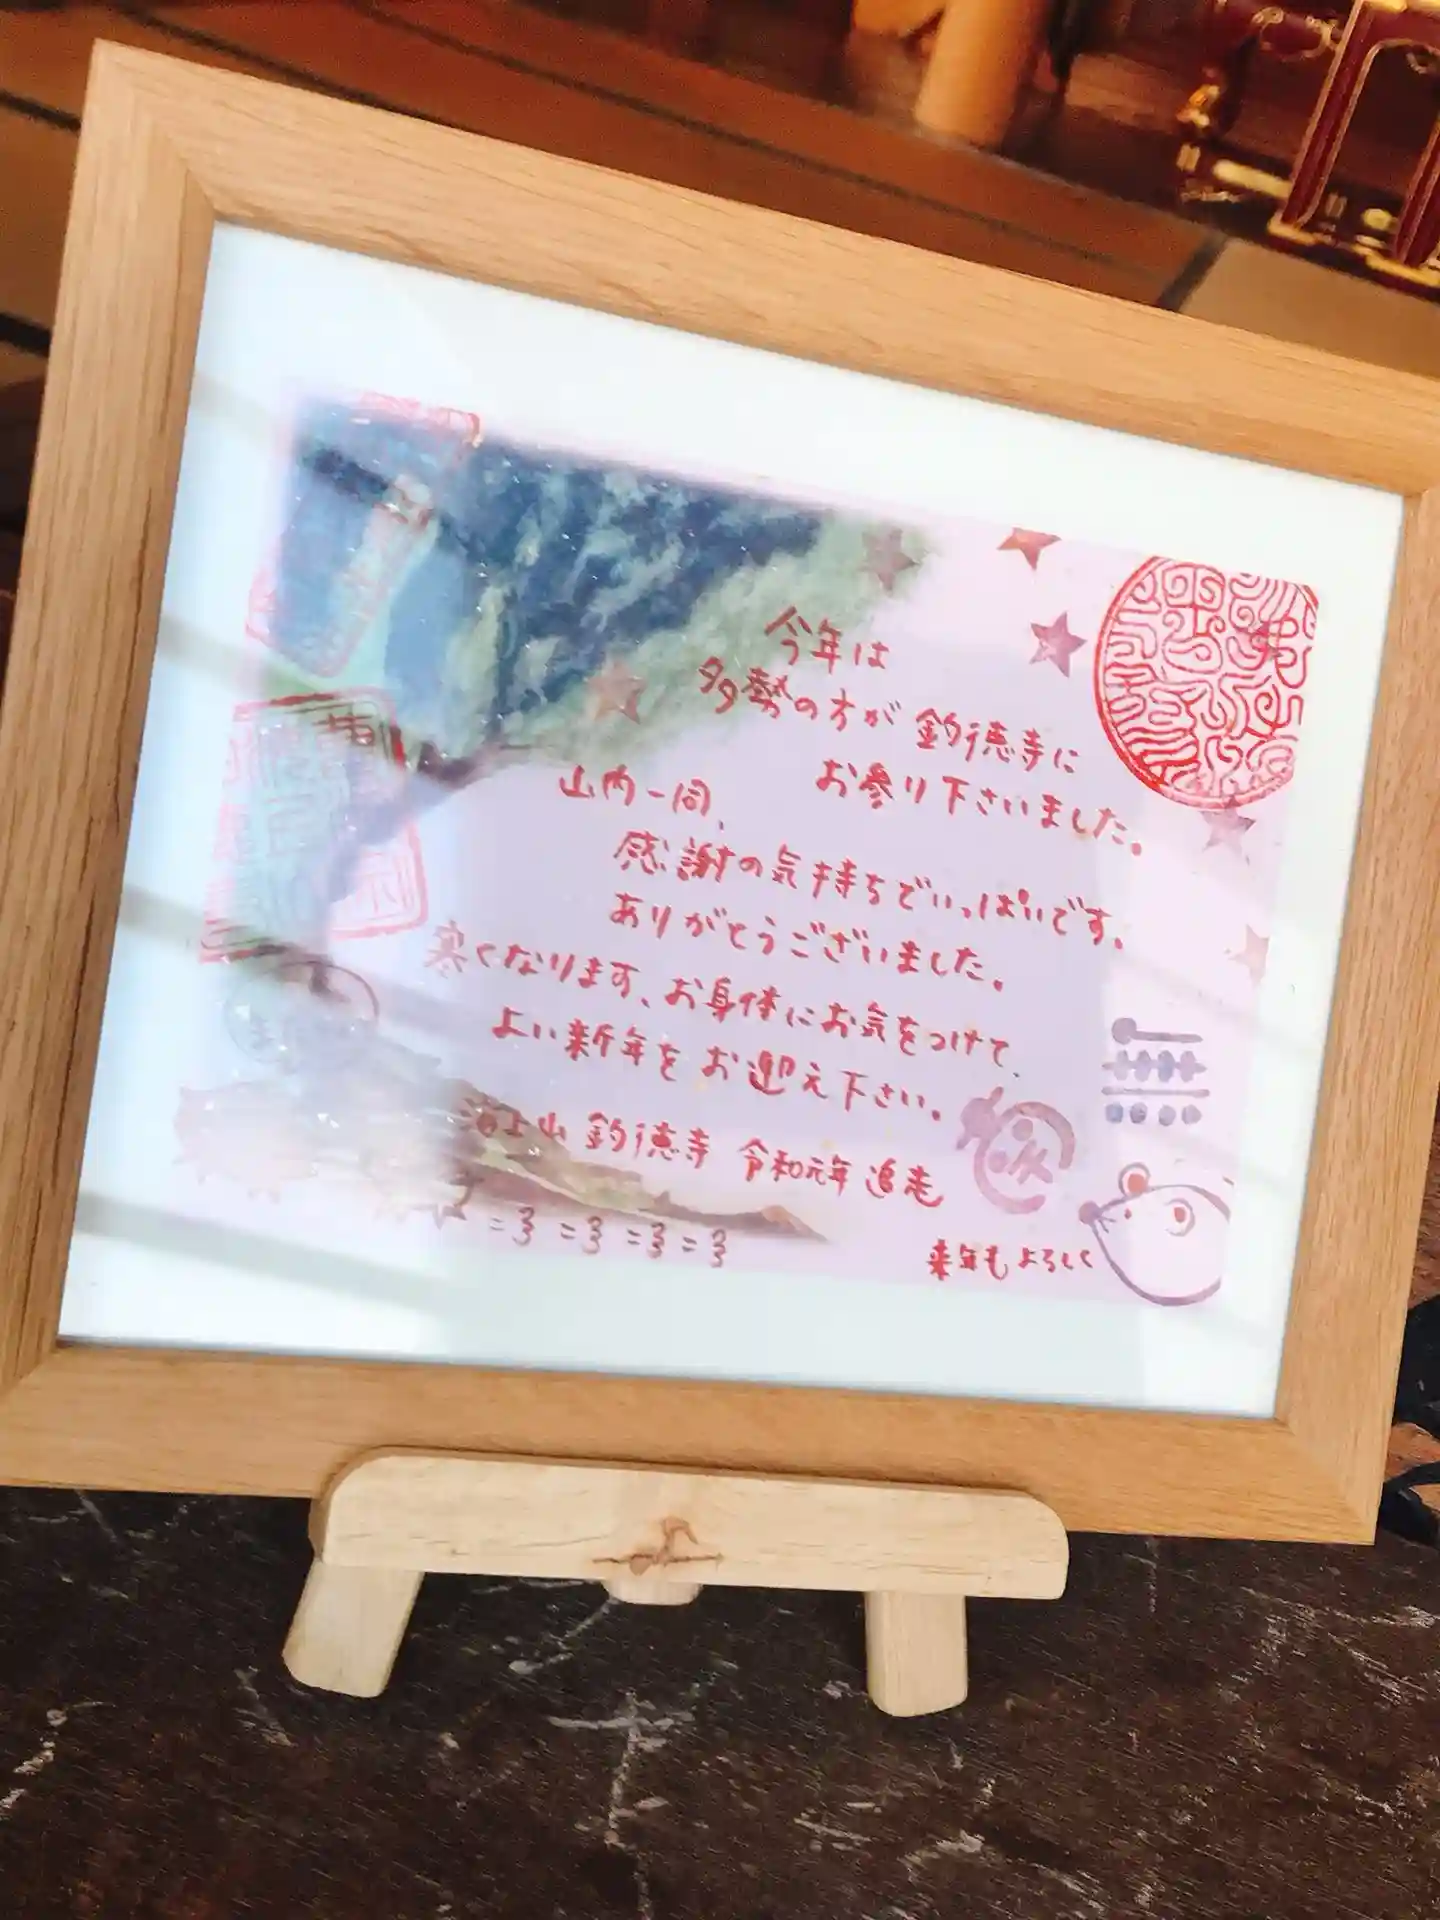 今年は
多勢の方が釣徳寺に
お参り下さいました。
山内一同、
感謝の気持ちでいっぱいです。
ありがとうございました。
寒くなります、お身体にお気をつけて、
よい新年をお迎え下さい。
海上山 釣徳寺 令和元年 追走
亥
来年もよろしく